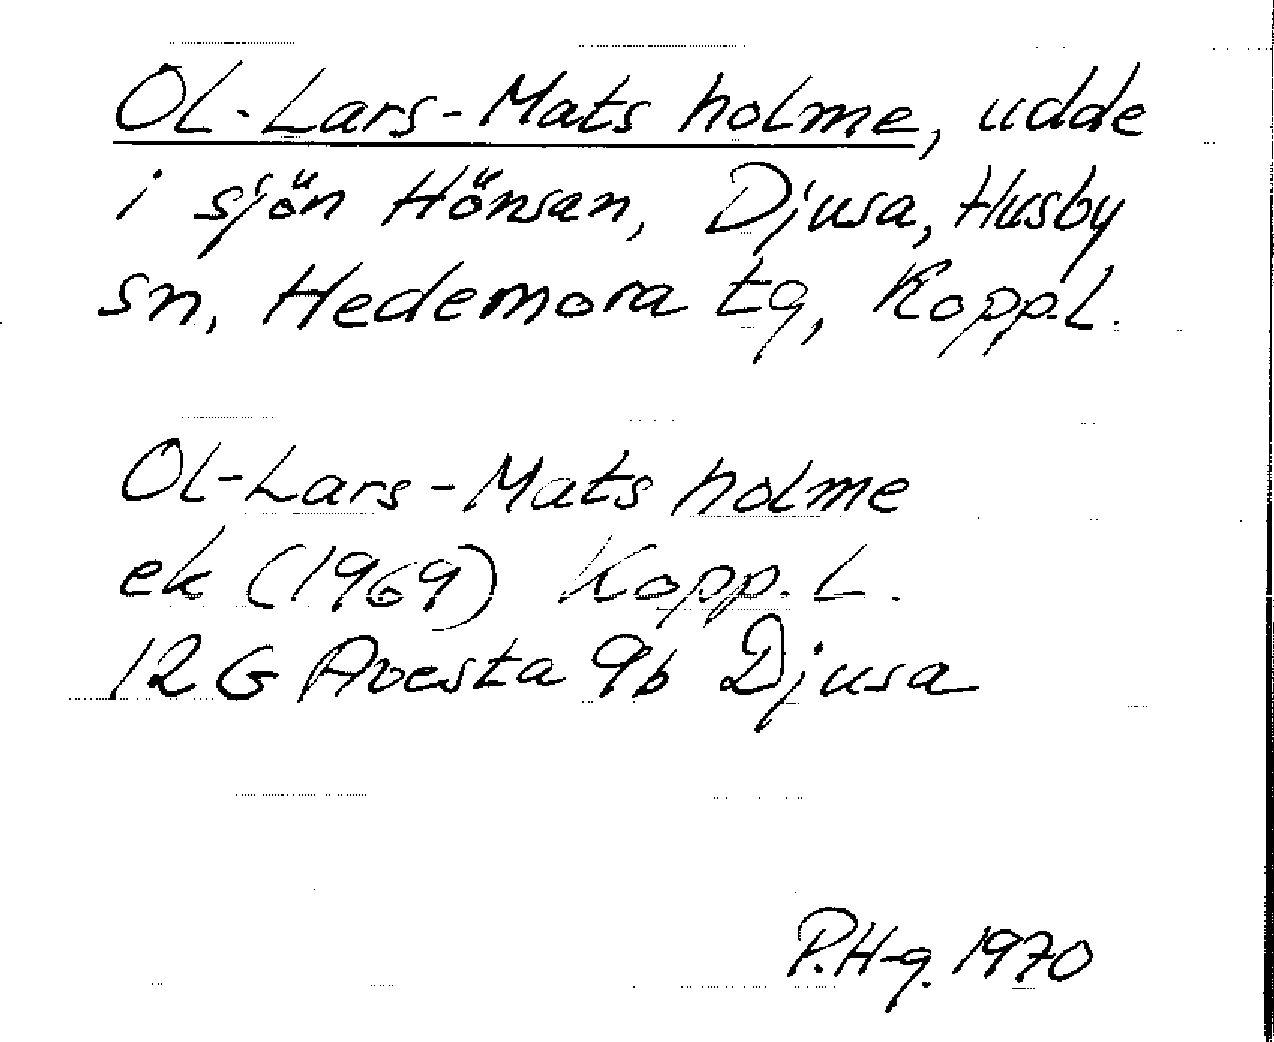 Ol-Lars-Mats holme, udde
i sjön Hönsan, Djusa, Husby
sn, Hedemora tg, Kopp.l.
Ol-Lars-Mats holme
ek (1969) Kopp. L.
12 G Avesta 9b Djusa
P.H-g. 1970